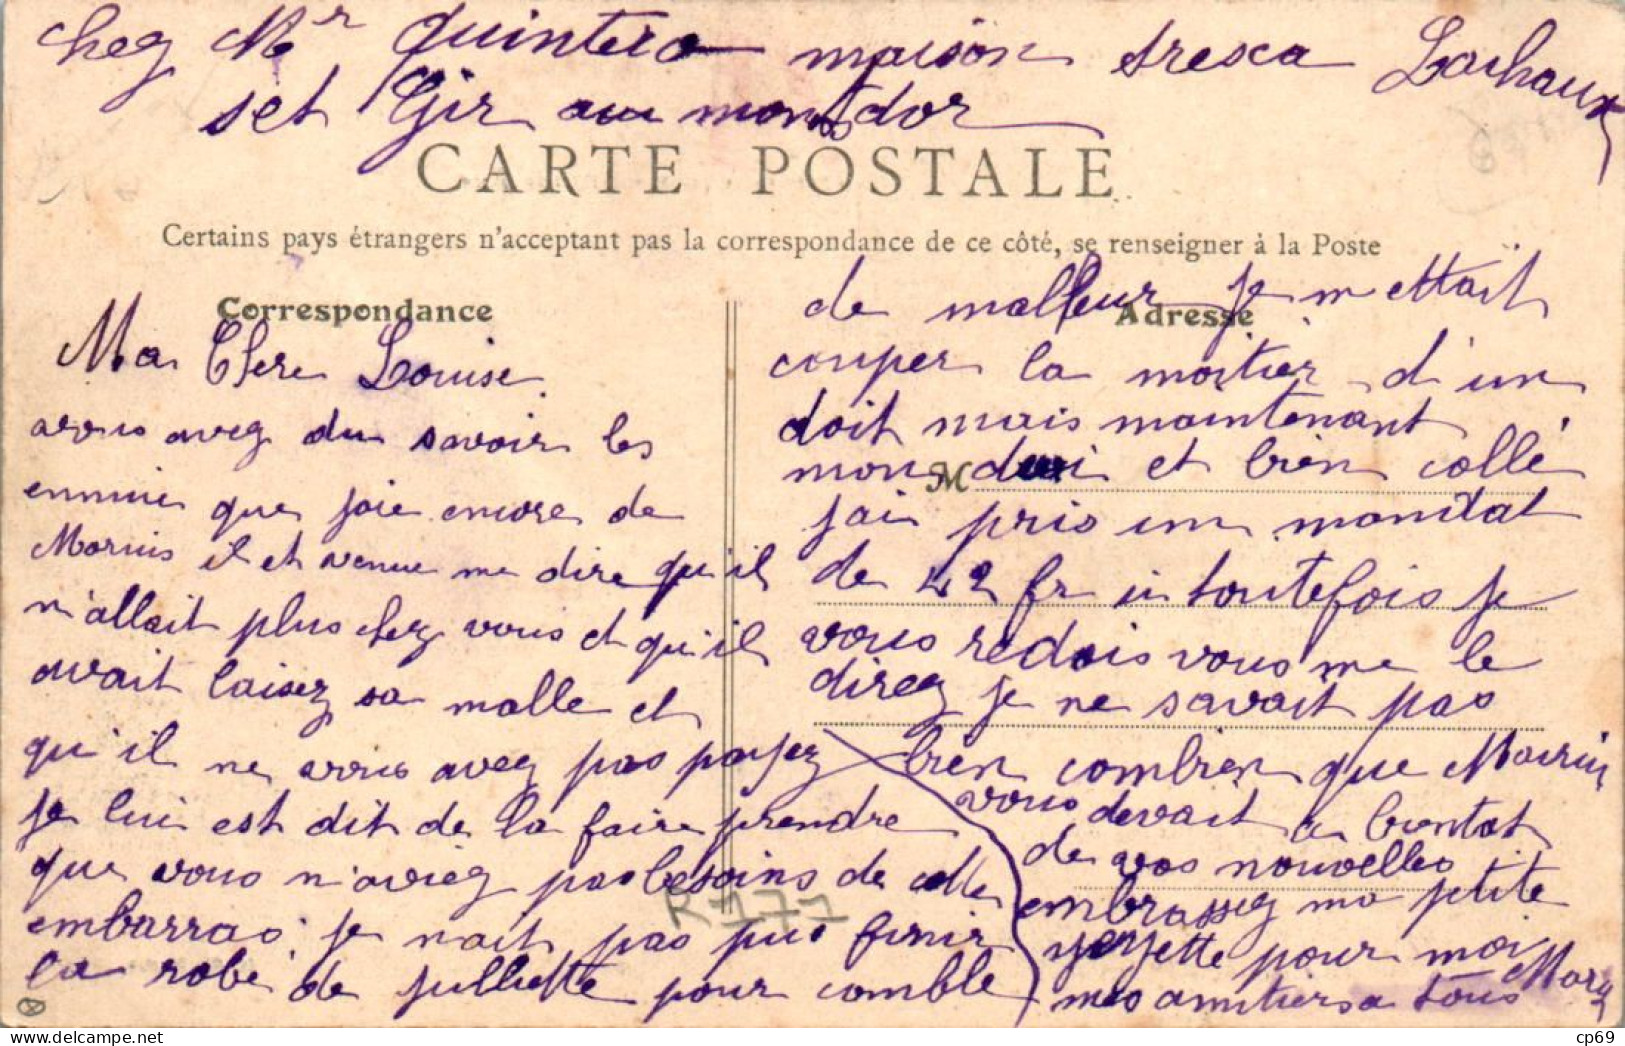 chez Mr quintera maison tresca Lachaux
set Gir au mont dor
CARTE POSTALE
Certains pays étrangers n'acceptant pas la correspondance de ce côté, se renseigner à la Poste
Correspondance
Ma Chere Louise
avous avez du savoir les
ennuie que joie encore de
Marius il et venue me dire qu'il
n'allait plus chez vous et qu'il
avait laisez sa malle et
qu'il ne vous avez pas payez
je lui est dit de la faire prendre
que vous n'aviez pas besoins de celle
embarras je nait pas pus finir
la robe de julliette pour comble
Adresse
de malleur je mettait
couper la moitier d'un
doit mais maintenant
M
mon doi et bien collé
jai pris un mandat
de 42 fr si toutefois je
vous redois vous me le
direz je ne savait pas
bien combien que Marius
vous devait a bientot
de vos nouvelles
embrassez ma petite
yeyette pour moi
mes amitiers a tous Mary
R777
cp69